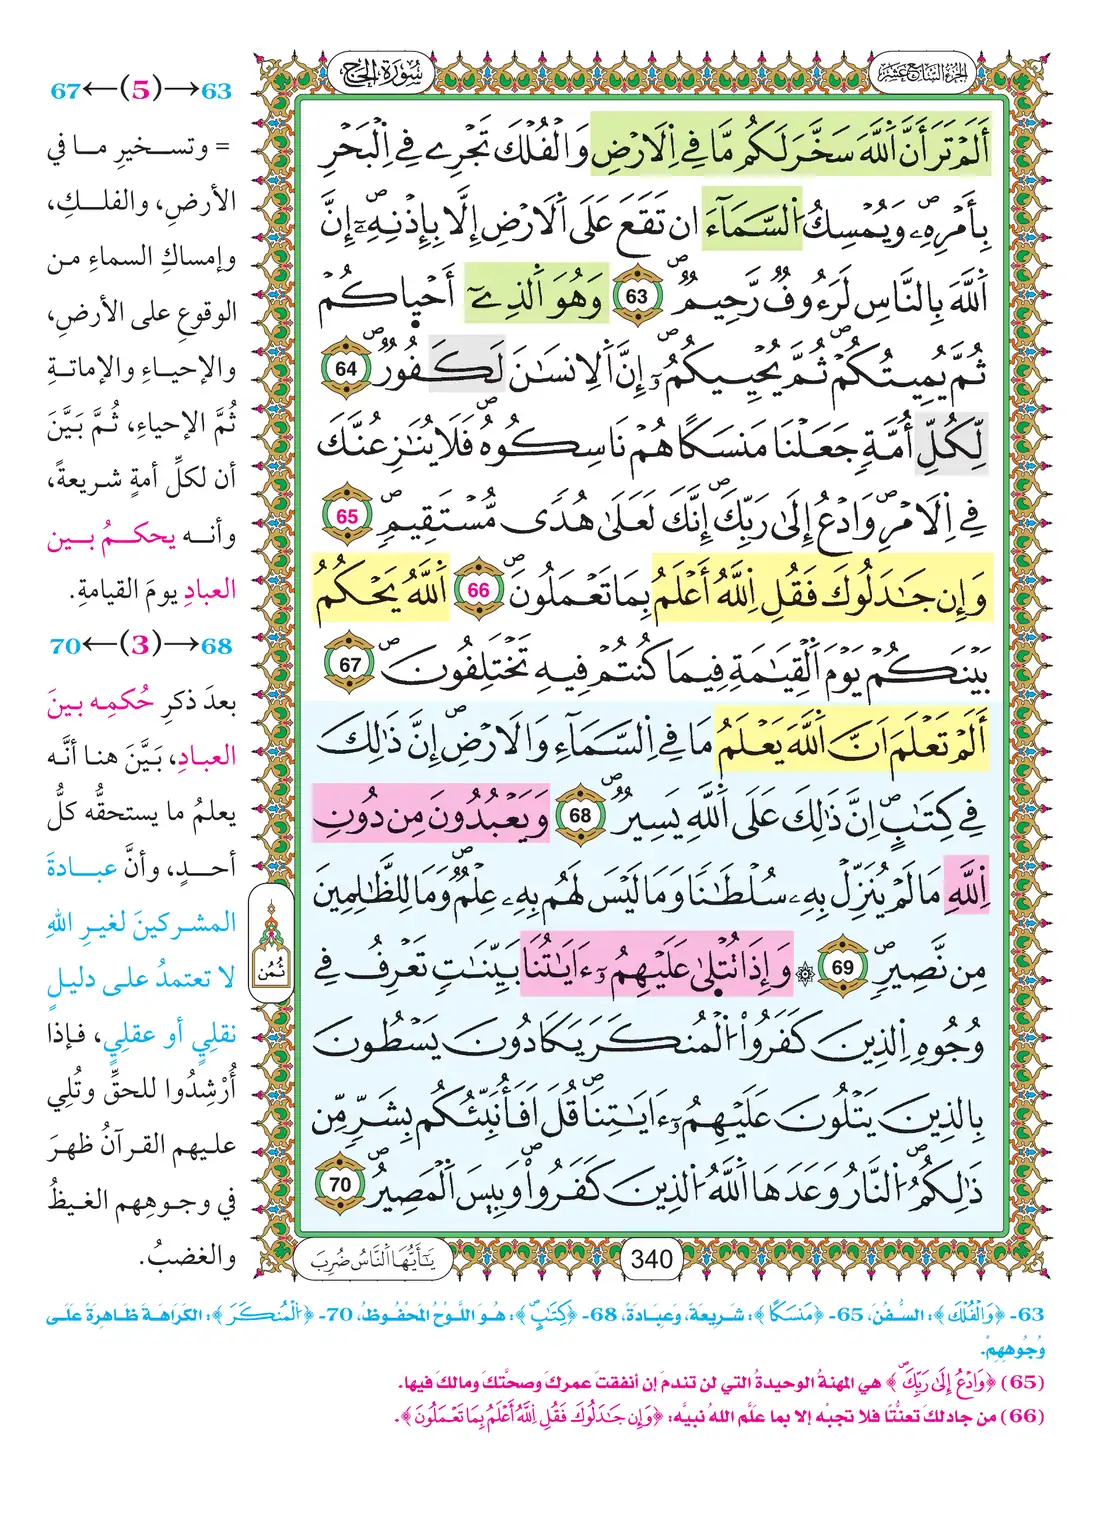 الجزء السابع عشر
سورة الحج
أَلَمْ تَرَ أَنَّ اَللَّهَ سَخَّرَ لَكُم مَّا فِے اِلَارْضِ وَالْفُلْكَ تَجْرِے فِے اِلْبَحْرِ
بِأَمْرِهِۦۖ وَيُمْسِكُ اُلسَّمَآءَ ان تَقَعَ عَلَى اَلَارْضِ إِلَّا بِإِذْنِهِۦٓۖ إِنَّ
اَللَّهَ بِالنَّاسِ لَرَءُوفٌ رَّحِيمٌۖ 63 وَهُوَ اَلذِےٓ أَحْياكُمْ
ثُمَّ يُمِيتُكُمْۖ ثُمَّ يُحْيِيكُمُۥٓۖ إِنَّ اَلِانسَٰنَ لَكَفُورٌۖ 64
لِّكُلِّ أُمَّةٍ جَعَلْنَا مَنسَكًا هُمْ نَاسِكُوهُۖ فَلَا يُنَٰزِعُنَّكَ
فِے اِلَامْرِۖ وَادْعُ إِلَىٰ رَبِّكَۖ إِنَّكَ لَعَلَىٰ هُدًى مُّسْتَقِيمٍۖ 65
وَإِن جَٰدَلُوكَ فَقُلِ اِللَّهُ أَعْلَمُ بِمَا تَعْمَلُونَۖ 66 اَللَّهُ يَحْكُمُ
بَيْنَكُمْ يَوْمَ اَلْقِيَٰمَةِ فِيمَا كُنتُمْ فِيهِ تَخْتَلِفُونَۖ 67
أَلَمْ تَعْلَمَ اَنَّ اَللَّهَ يَعْلَمُ مَا فِے اِلسَّمَآءِ وَالَارْضِۖ إِنَّ ذَٰلِكَ
فِے كِتَٰبٍۖ اِنَّ ذَٰلِكَ عَلَى اَللَّهِ يَسِيرٌۖ 68 وَيَعْبُدُونَ مِن دُونِ
اِللَّهِ مَا لَمْ يُنَزِّلْ بِهِۦ سُلْطَٰنًا وَمَا لَيْسَ لَهُم بِهِۦ عِلْمٌۖ وَمَا لِلظَّٰلِمِينَ
مِن نَّصِيرٍۖ 69 ۞ وَإِذَا تُتْلَىٰ عَلَيْهِمُۥٓ ءَايَٰتُنَا بَيِّنَٰتٍ تَعْرِفُ فِے
وُجُوهِ اِلذِينَ كَفَرُواْ اُلْمُنكَرَ يَكَادُونَ يَسْطُونَ
بِالذِينَ يَتْلُونَ عَلَيْهِمُۥٓ ءَايَٰتِنَاۖ قُلَ اَفَأُنَبِّئُكُم بِشَرٍّ مِّن
ذَٰلِكُمُۖ اُلنَّارُ وَعَدَهَا اَللَّهُ اُلذِينَ كَفَرُواْۖ وَبِيسَ اَلْمَصِيرُۖ 70
ثُمُن
340
يَٰٓأَيُّهَا اَلنَّاسُ ضُرِبَ
63→(5)←67
= وتسخيرِ ما في
الأرضِ، والفلكِ،
وإمساكِ السماءِ من
الوقوعِ على الأرضِ،
والإحياءِ والإماتةِ
ثُمَّ الإحياءِ، ثُمَّ بَيَّنَ
أن لكلِّ أمةٍ شريعةً،
وأنه يحكمُ بين
العبادِ يومَ القيامةِ.
68→(3)←70
بعدَ ذكرِ حُكمِه بينَ
العبادِ، بَيَّنَ هنا أنَّه
يعلمُ ما يستحقُّه كلُّ
أحدٍ، وأنَّ عبادةَ
المشركينَ لغيرِ اللهِ
لا تعتمدُ على دليلٍ
نقلِيٍ أو عقلِيٍ، فإذا
أُرْشِدُوا للحقِّ وتُلِي
عليهم القرآنُ ظهرَ
في وجوهِهم الغيظُ
والغضبُ.
63- ﴿وَالْفُلْكَ﴾: السُّفُنَ، 65- ﴿مَنسَكًا﴾: شَرِيعَةً، وَعِبَادَةً، 68- ﴿كِتَٰبٍۖ﴾: هُوَ اللَّوْحُ المَحْفُوظُ، 70- ﴿اُلْمُنكَرَ﴾: الكَرَاهَةَ ظَاهِرَةً عَلَى
وُجُوهِهِمْ.
(65) ﴿وَادْعُ إِلَىٰ رَبِّكَۖ﴾ هي المهنةُ الوحيدةُ التي لن تندمَ إن أنفقتَ عمرَكَ وصحتَّكَ ومالكَ فيها.
(66) من جادلكَ تعنُّتًا فلا تجبْه إلا بما علَّم اللهُ نبيَّه: ﴿وَإِن جَٰدَلُوكَ فَقُلِ اِللَّهُ أَعْلَمُ بِمَا تَعْمَلُونَ﴾.